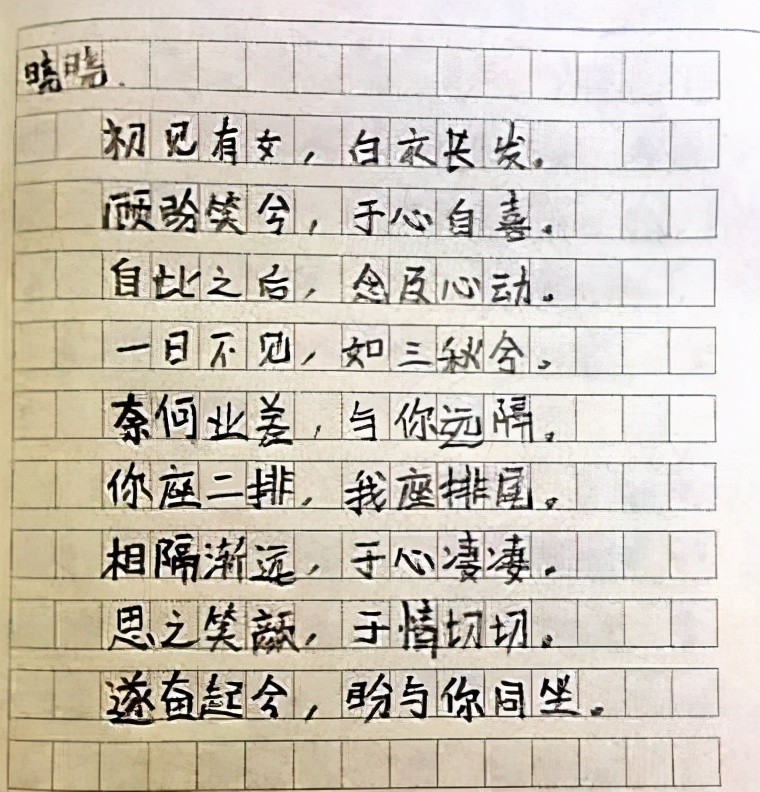 晓晓.
初见有女，白衣长发。
顾盼笑兮，于心自喜。
自比之后，念及心动。
一日不见，如三秋兮。
奈何业差，与你远隔。
你座二排，我座排尾。
相隔渐远，于心凄凄。
思之笑颜，于情切切。
遂奋起兮，盼与你同坐。